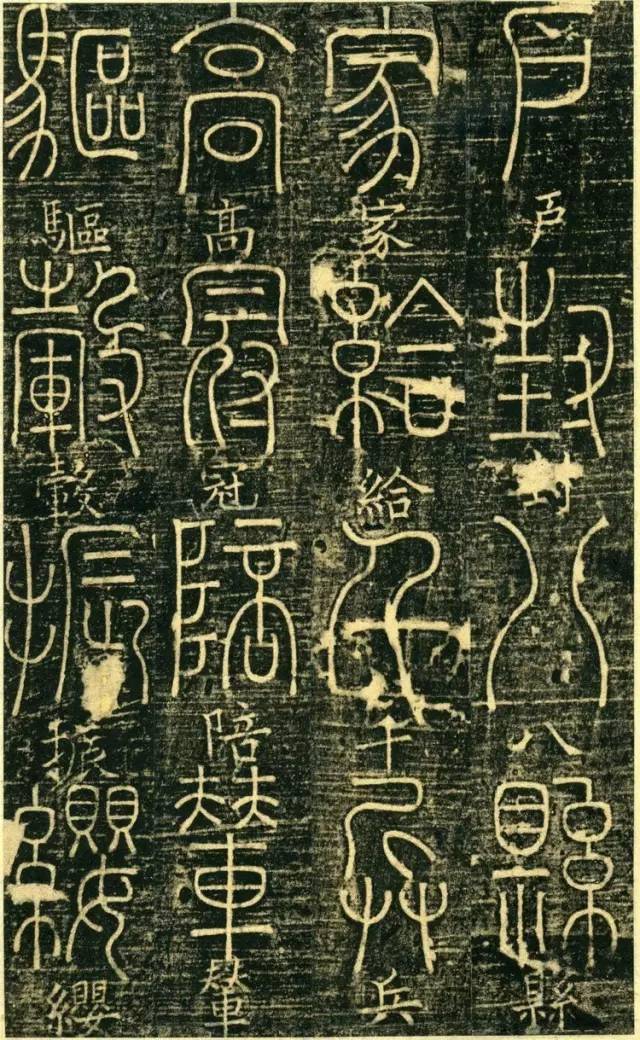 戶戶封封八八縣縣
家家給給千千兵兵
高髙冠冠陪陪輦輦
驅驅轂轂振振纓纓